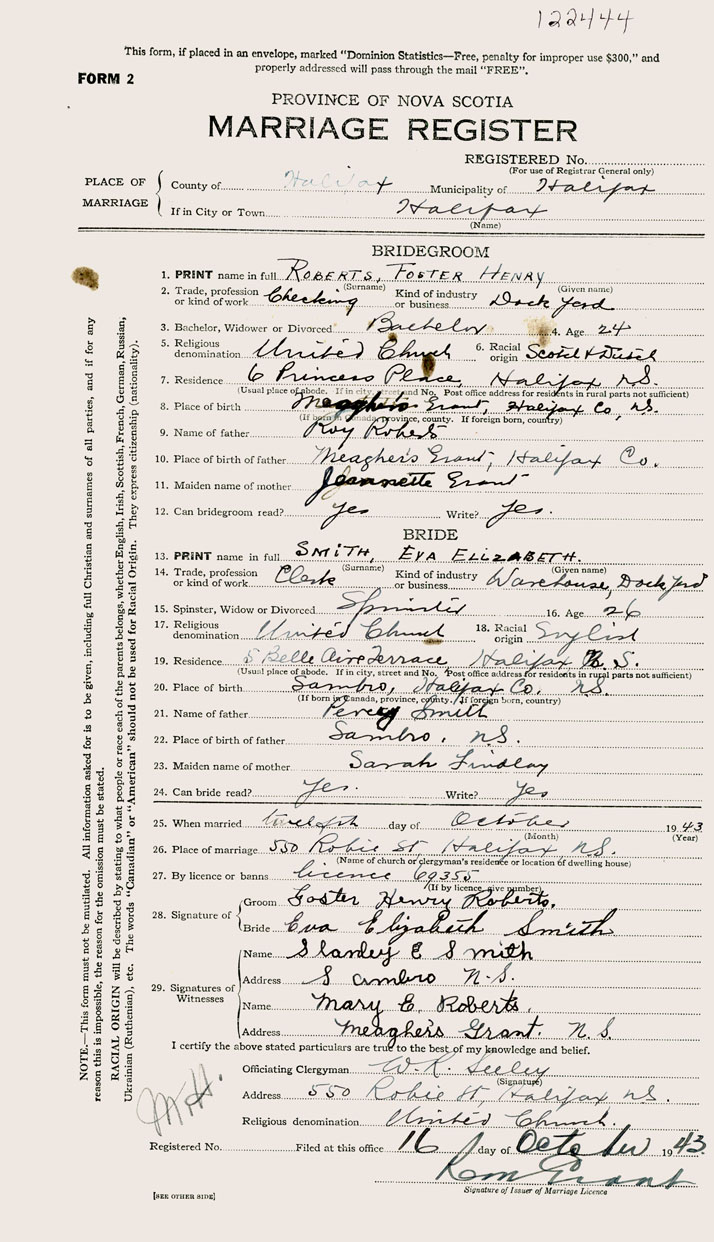 122444
This form, if placed in an envelope, marked "Dominion Statistics—Free, penalty for improper use $300," and
properly addressed will pass through the mail "FREE".
FORM 2
PROVINCE OF NOVA SCOTIA
MARRIAGE REGISTER
REGISTERED No.
(For use of Registrar General only)
PLACE OF MARRIAGE
County of Halifax Municipality of Halifax
If in City or Town Halifax
(Name)
BRIDEGROOM
1. PRINT name in full ROBERTS, FOSTER HENRY
(Surname) (Given name)
2. Trade, profession or kind of work Checking Kind of industry or business Dock Yard
3. Bachelor, Widower or Divorced Bachelor 4. Age 24
5. Religious denomination United Church 6. Racial origin Scotch & Dutch
7. Residence 6 Princess Place, Halifax N.S.
(Usual place of abode. If in city, street and No. Post office address for residents in rural parts not sufficient)
8. Place of birth Meaghers Grant, Halifax Co, N.S.
(If born in Canada, province, county. If foreign born, country)
9. Name of father Roy Roberts
10. Place of birth of father Meagher's Grant, Halifax Co.
11. Maiden name of mother Jeannette Grant
12. Can bridegroom read? Yes Write? Yes.
BRIDE
13. PRINT name in full SMITH, EVA ELIZABETH.
(Surname) (Given name)
14. Trade, profession or kind of work Clerk Kind of industry or business Warehouse, Dock Yard
15. Spinster, Widow or Divorced Spinster 16. Age 26
17. Religious denomination United Church 18. Racial origin English
19. Residence 5 Belle Aire Terrace Halifax N.S.
(Usual place of abode. If in city, street and No. Post office address for residents in rural parts not sufficient)
20. Place of birth Sambro, Halifax Co. N.S.
(If born in Canada, province, county. If foreign born, country)
21. Name of father Percy Smith
22. Place of birth of father Sambro, N.S.
23. Maiden name of mother Sarah Findlay
24. Can bride read? Yes. Write? Yes
25. When married twelfth day of October 1943
(Month) (Year)
26. Place of marriage 550 Robie St Halifax, N.S.
(Name of church or clergyman's residence or location of dwelling house)
27. By licence or banns licence 69355
(If by licence, give number)
28. Signature of
Groom Foster Henry Roberts.
Bride Eva Elizabeth Smith
29. Signatures of Witnesses
Name Stanley E Smith
Address Sambro N.S.
Name Mary E. Roberts.
Address Meaghers Grant. N.S.
I certify the above stated particulars are true to the best of my knowledge and belief.
Officiating Clergyman W.R. Seeley
(Signature)
Address 550 Robie St, Halifax N.S.
Religious denomination United Church.
Registered No. Filed at this office 16 day of October 1943.
Signature of Issuer of Marriage Licence
[SEE OTHER SIDE]
NOTE.—This form must not be mutilated. All information asked for is to be given, including full Christian and surnames of all parties, and if for any
reason this is impossible, the reason for the omission must be stated.
RACIAL ORIGIN will be described by stating to what people or race each of the parents belongs, whether English, Irish, Scottish, French, German, Russian,
Ukrainian (Ruthenian), etc. The words "Canadian" or "American" should not be used for Racial Origin. They express citizenship (nationality).